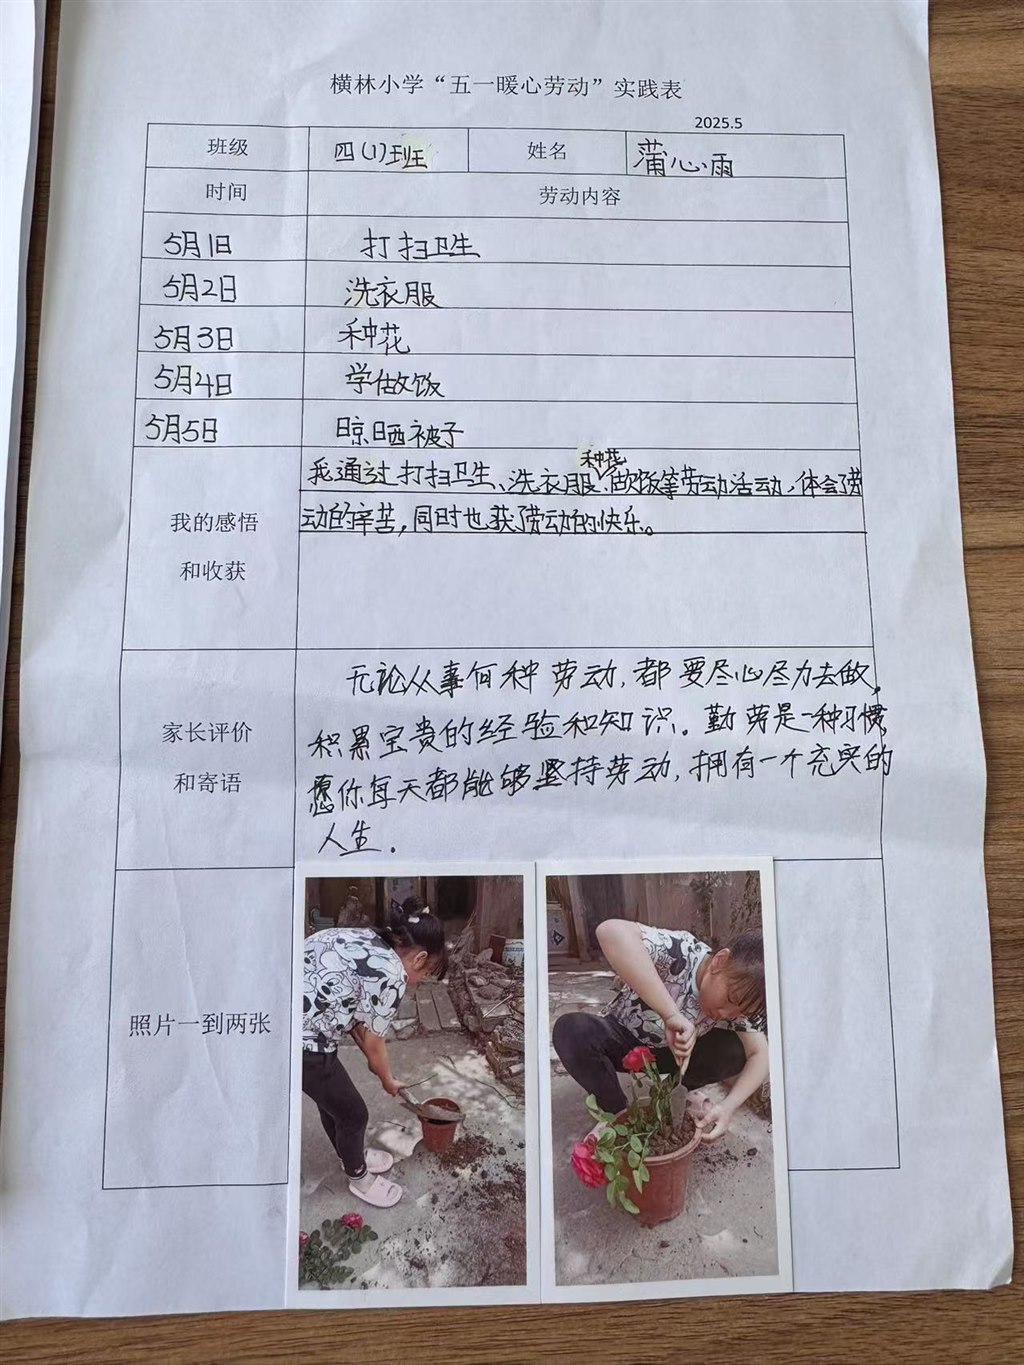 横林小学“五一暖心劳动”实践表
2025.5
班级 四(1)班 姓名 蒲心雨
时间 劳动内容
5月1日 打扫卫生
5月2日 洗衣服
5月3日 种花
5月4日 学做饭
5月5日 晾晒被子
我的感悟
和收获
种花
我通过打扫卫生、洗衣服、做饭等劳动活动,体会了劳
动的辛苦,同时也获了劳动的快乐。
家长评价
和寄语
无论从事何种劳动,都要尽心尽力去做,
积累宝贵的经验和知识。勤劳是一种习惯,
愿你每天都能够坚持劳动,拥有一个充实的
人生.
照片一到两张